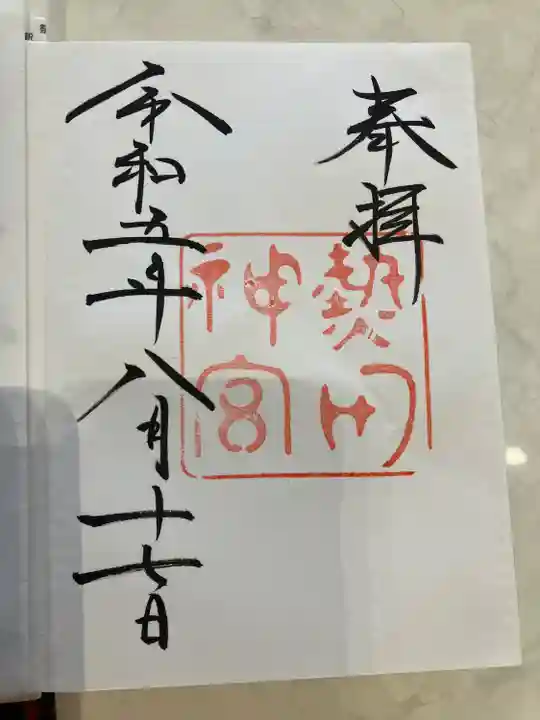 奉拝
熱田
神宮
令和五年八月十七日